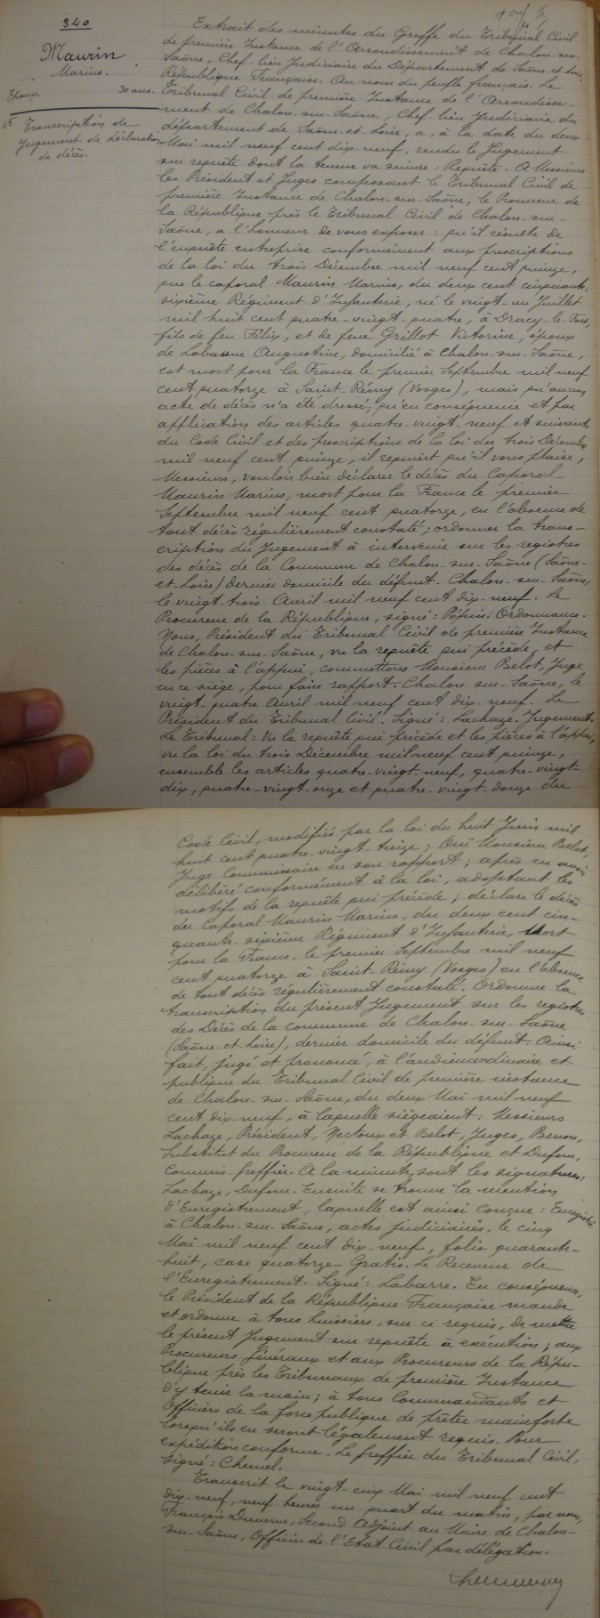 340
Maurin
Marius.
Epoux 30 ans.
Transcription de
Jugement de déclaration
de décès.
Extrait des minutes du Greffe du Tribunal Civil
de première Instance de l'Arrondissement de Chalon-sur-
Saône, Chef-lieu Judiciaire du Département de Saône-et-Loire.
République Française. Au nom du peuple français. Le
Tribunal Civil de première Instance de l'Arrondisse-
ment de Chalon-sur-Saône, Chef-lieu Judiciaire du
département de Saône-et-Loire, a, à la date du deux
Mai mil neuf cent dix-neuf, rendu le Jugement
sur requête dont la teneur va suivre: Requête. A Messieurs
les Président et Juges composant le Tribunal Civil de
première Instance de Chalon-sur-Saône, le Procureur de
la République près le Tribunal Civil de Chalon-sur-
Saône, a l'honneur de vous exposer: qu'il résulte de
l'enquête entreprise conformément aux prescriptions
de la loi du trois Décembre mil neuf cent quinze,
que le caporal Maurin Marius, du deux cent cinquante-
sixième Régiment d'Infanterie, né le vingt-un Juillet
mil huit cent quatre-vingt-quatre, à Dracy-le-Fort,
fils de feu Félix, et de feue Grillot Victorine, époux
de Labaune Augustine, domicilié à Chalon-sur-Saône,
est mort pour la France le premier Septembre mil neuf
cent quatorze à Saint-Rémy (Vosges), mais qu'aucun
acte de décès n'a été dressé; qu'en conséquence et par
application des articles quatre-vingt-neuf et suivants
du Code Civil et des prescriptions de la loi du trois Décembre
mil neuf cent quinze, il requiert qu'il vous plaise,
Messieurs, vouloir bien déclarer le décès du Caporal
Maurin Marius, mort pour la France le premier
Septembre mil neuf cent quatorze, en l'absence de
tout décès régulièrement constaté; ordonner la trans-
cription du Jugement à intervenir sur les registres
des décès de la Commune de Chalon-sur-Saône (Saône-
et-Loire) dernier domicile du défunt. Chalon-sur-Saône,
le vingt-trois Avril mil neuf cent dix-neuf. Le
Procureur de la République, signé: Ordonnance.
Nous, Président du Tribunal Civil de première Instance
de Chalon-sur-Saône, vu la requête qui précède et
les pièces à l'appui, commettons Monsieur Belot, Juge
en ce siège, pour faire rapport. Chalon-sur-Saône, le
vingt-quatre Avril mil neuf cent dix-neuf. Le
Président du Tribunal Civil. Signé: Lachaze. Jugement.
Le Tribunal: Vu la requête qui précède et les pièces à l'appui;
vu la loi du trois Décembre mil neuf cent quinze,
ensemble les articles quatre-vingt-neuf, quatre-vingt-
dix, quatre-vingt-onze et quatre-vingt-douze du
Code Civil, modifiés par la loi du huit Juin mil
huit cent quatre-vingt-treize; Ouï Monsieur Belot,
Juge Commissaire en son rapport; après en avoir
délibéré conformément à la loi, adoptant les
motifs de la requête qui précède; déclare le décès
du Caporal Maurin Marius, du deux cent cin-
quante-sixième Régiment d'Infanterie, Mort
pour la France, le premier Septembre mil neuf
cent quatorze à Saint-Rémy (Vosges) en l'absence
de tout décès régulièrement constaté. Ordonne la
transcription du présent Jugement sur les registres
des Décès de la commune de Chalon-sur-Saône
(Saône-et-Loire), dernier domicile du défunt. Ainsi
fait, jugé et prononcé, à l'audience ordinaire et
publique du Tribunal Civil de première instance
de Chalon-sur-Saône, du deux Mai mil neuf
cent dix-neuf, à laquelle siégeaient: Messieurs
Lachaze, Président, Nectoux et Belot, Juges,
Substitut du Procureur de la République et Dufour,
Commis-greffier. A la minute, sont les signatures:
Lachaze, Dufour. Ensuite se trouve la mention
d'Enregistrement, laquelle est ainsi conçue: Enregistré
à Chalon-sur-Saône, actes judiciaires, le cinq
Mai mil neuf cent dix-neuf, folio quarante-
huit, case quatorze. Gratis. Le Receveur de
l'Enregistrement. Signé: Labarre. En conséquence,
le Président de la République Française mande
et ordonne à tous huissiers, sur ce requis, de mettre
le présent Jugement sur requête à exécution; aux
Procureurs Généraux et aux Procureurs de la Répu-
blique près les Tribunaux de première Instance
d'y tenir la main; à tous Commandants et
Officiers de la force publique de prêter mainforte
lorsqu'ils en seront légalement requis. Pour
expédition conforme. Le greffier du Tribunal Civil.
Signé: Chemel.
Transcrit le vingt-cinq Mai mil neuf cent
dix-neuf, neuf heures un quart du matin, par nous,
François Second Adjoint au Maire de Chalon-
sur-Saône, Officier de l'Etat Civil par délégation.